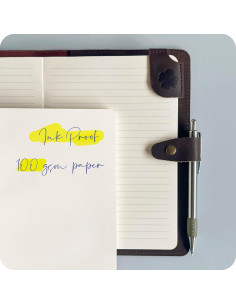 Ink Proof
100 gsm paper